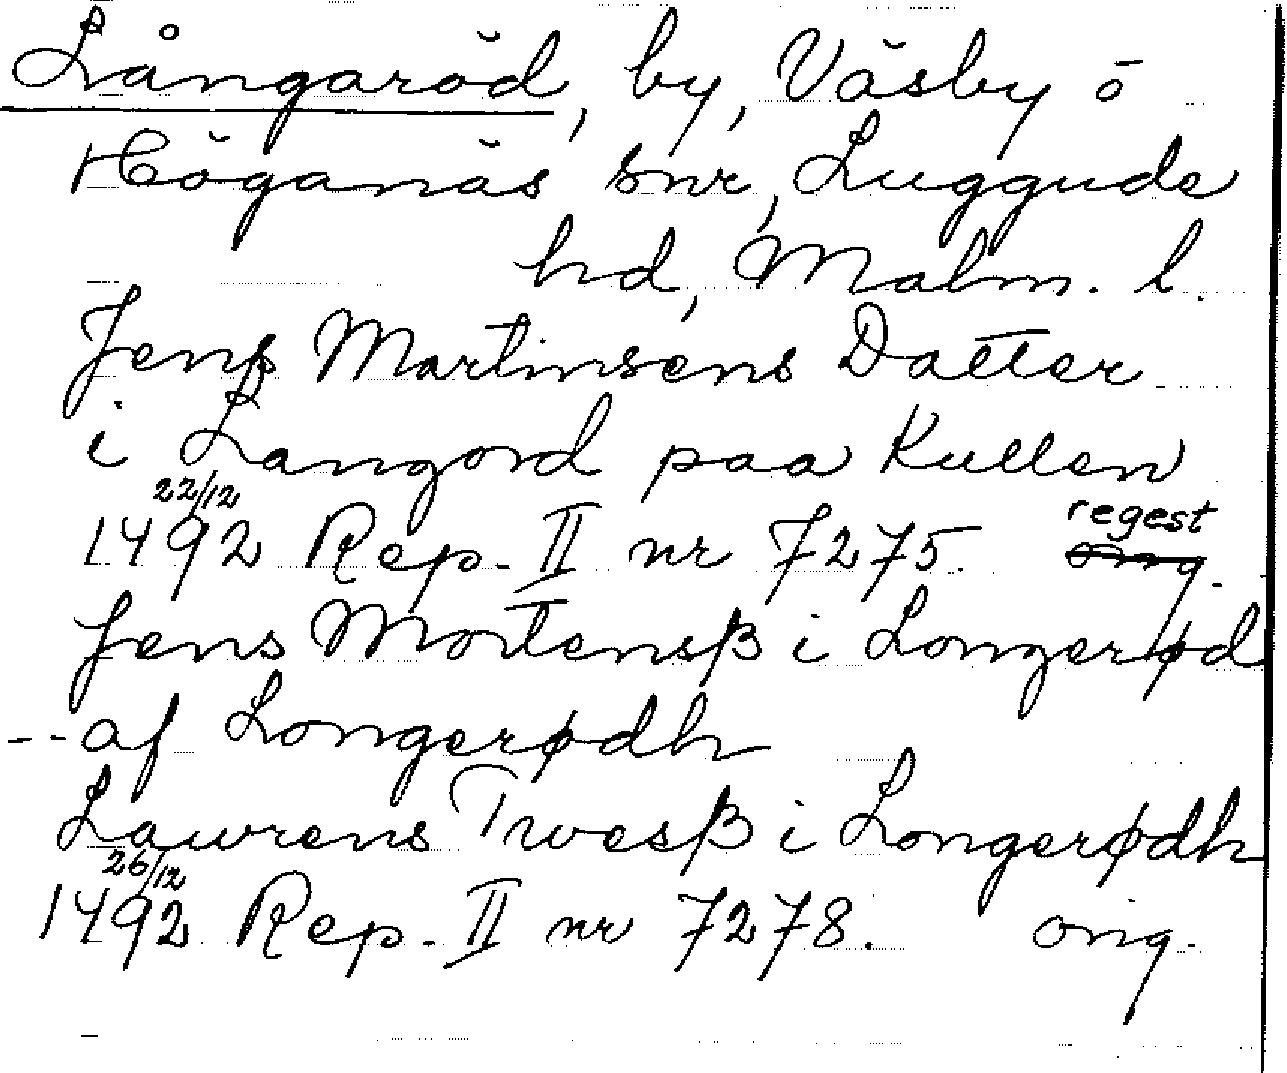 Långaröd, by, Väsby o
Höganäs snr, Luggude
hd, Malm. l.
Jens Martinsens Datter
i Langord paa Kullen
22/12
1492 Rep. II nr 7275. regest
orig.
Jens Mortensß i Longerød
-- af Longerødh
Lawrens Twesß i Longerødh
26/12
1492 Rep. II nr 7278. orig.